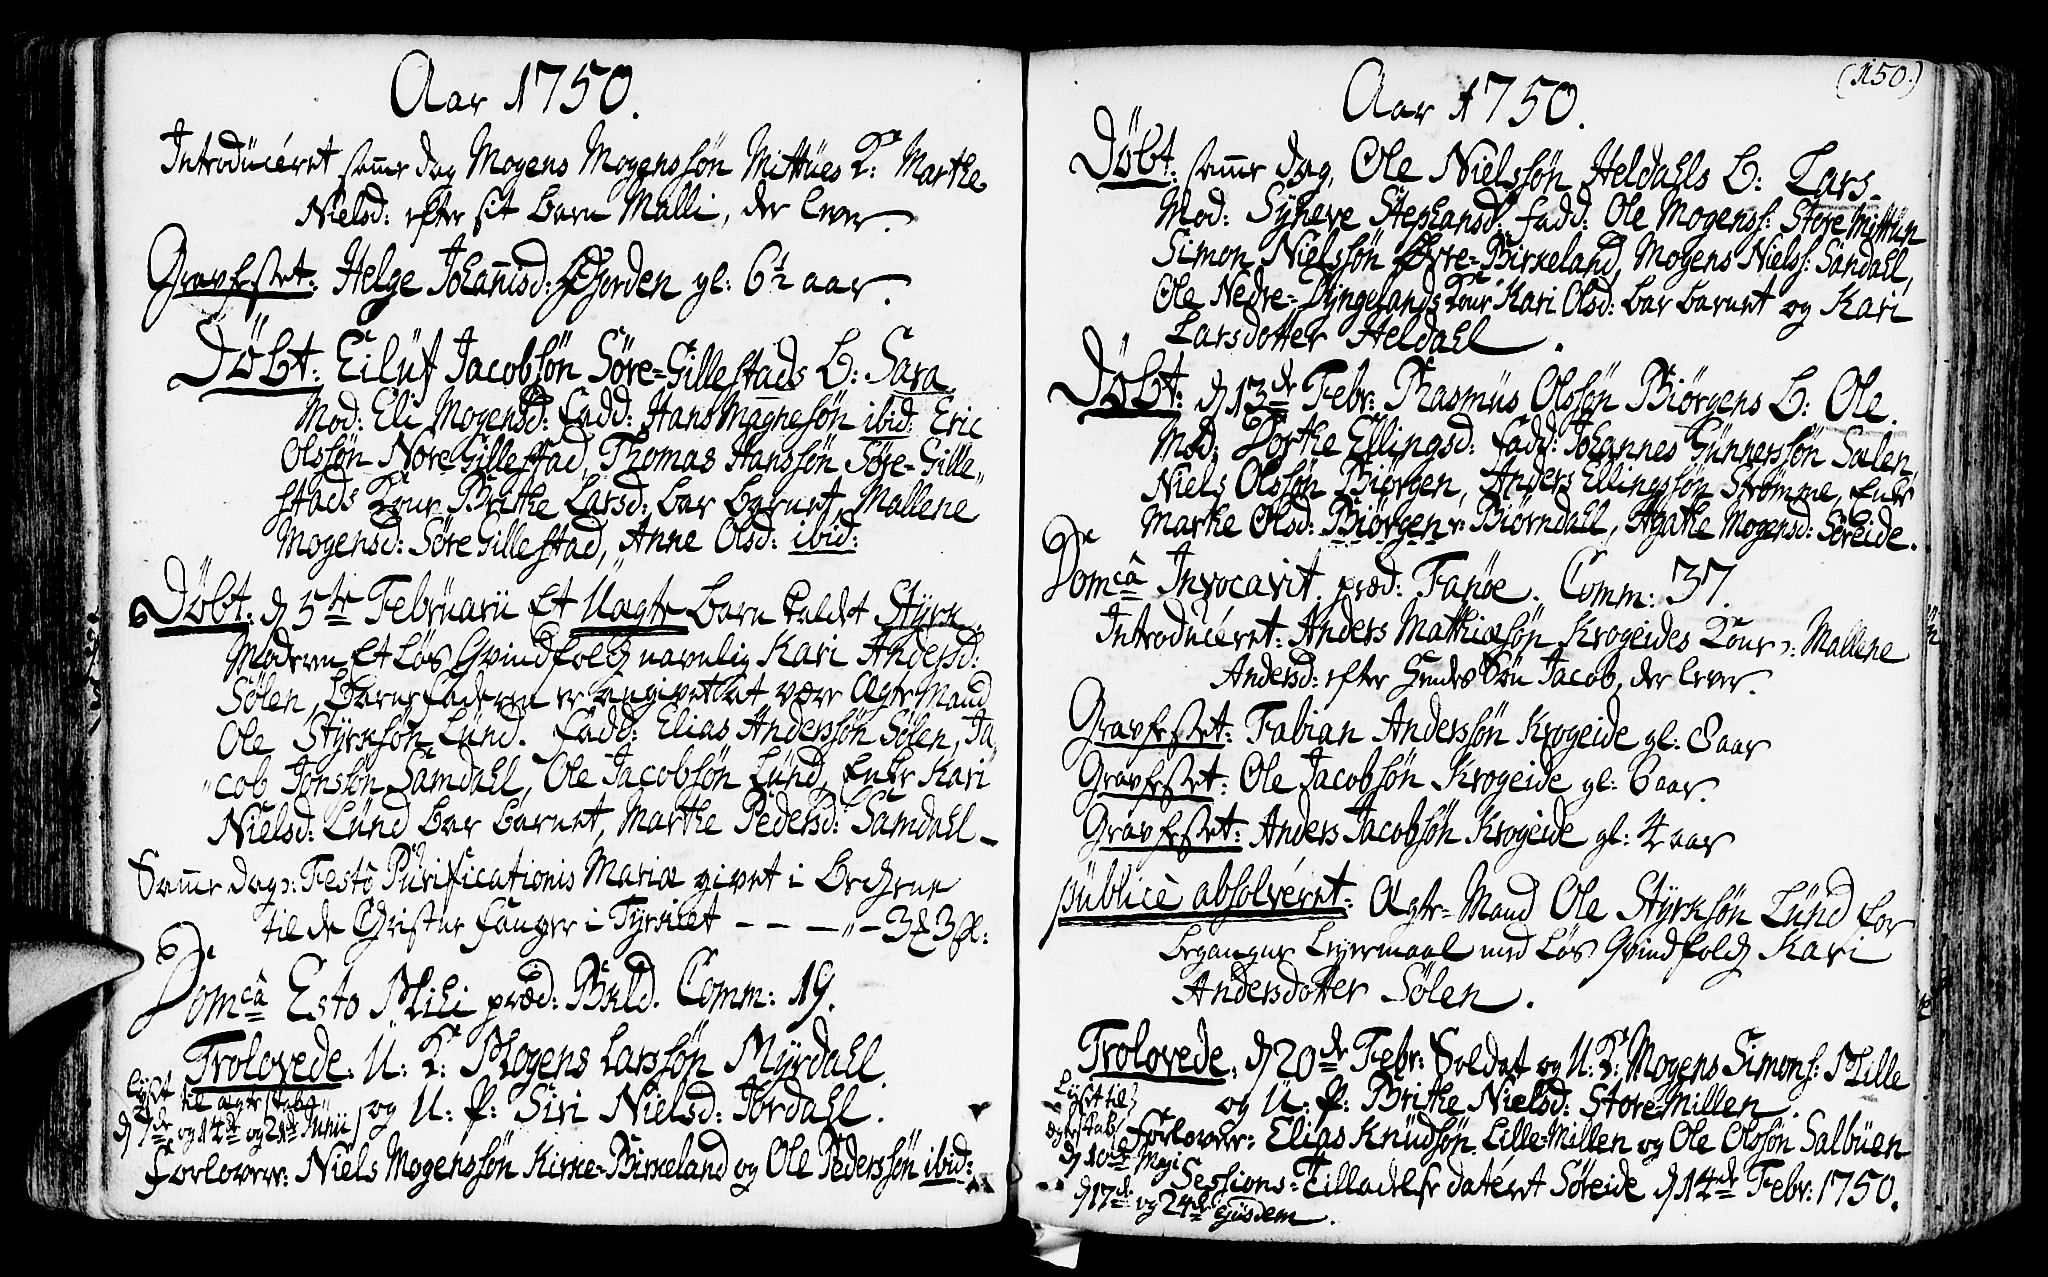 Aar 1750.
Introducéret samme dag Mogens Mogenssøn Mittües K: Marthe
Nielsd: efter sit barn Malli, der lever.
Gravfestet: Helge Johannisd: Fjorden gl: 6½ aar.
Döbt: Eiluf Jacobsøn Søre-Gillestads b: Sara.
Mod: Eli Mogensd: fadd: Hans Magnesøn ibid: Eric
Olssøn Nore Gillestad, Thomas Hanssøn Søre-Gille„
stads Kone Brithe Larsd: bar barnet, Mallene
Mogensd: Søre Gillestad, Anne Olsd: ibid:
Döbt: d 5te Februarii Et Uægte barn kaldet Styrk.
Moderen Et Løs Qvindfolk navnlig Kari Andersd:
Sølen, barnefaderen er angivet at være Ægte Mand
Ole Styrksøn Lünd. fadd: Elias Anderssøn Sølen, Ja„
„cob Jonssøn Samdahl, Ole Jacobsøn Lünd, Enke Kari
Nielsd: Lünd bar barnet, Marthe Pedersd: Samdahl –
Samme dag: Festo Purificationis Mariæ givet i bøssene
til de Christne fanger i Tyrkiet – – – „ – 3 3ß:
Domca Esto Mihi præd: Bkld. Comm: 19.
Trolovede: U: K: Mogens Larssøn Myrdahl
og U: P: Siri Nielsd: Jordahl.
lyst til ægteskab
d 7de og 14de og 21de Junii
Forlovere: Niels Mogenssøn Kirke-Birkeland og Ole Pederssøn ibid:
(150.)
Aar 1750.
Döbt: samme dag, Ole Nielssøn Heldahls b: Lars.
Mod: Syneve Stephansd: fadd: Ole Mogenss: Store Mittün
Simon Nielssøn Øvre-Birkeland, Mogens Nielss: Sandahl,
Ole Nedre-Tyngelands Kone Kari Olsd: bar barnet og Kari
Larsdotter Heldahl.
Döbt: d 13de Febr: Rasmus Olssøn Biørgens b: Ole.
Mod: Dorthe Ellingsd: fadd: Johannes Gunnerssøn Sælen,
Niels Olssøn Biørgen, Anders Ellingssøn Strømme, Enke
Marthe Olsd: Biørgen r: Biørndahl, Agathe Mogensd: Søreide.
Domca Invocavit præd: Fanøe. Comm: 37.
Introducéret: Anders Mathiæsøn Krogeides Kone: Mallene
Andersd: efter hendes Søn Jacob, der lever.
Gravfestet: Fabian Anderssøn Krogeide gl: 8 aar
Gravfestet: Ole Jacobsøn Krogeide gl: 6 aar.
Gravfestet: Anders Jacobsøn Krogeide gl: 4 aar
publice absolvéret: Ægte-Mand Ole Styrksøn Lünd for
begangne Leyermaal med Løs Qvindfolk Kari
Andersdotter Sølen.
Trolovede: d 20de Febr: Soldat og U: K: Mogens Simons: Lille
og U: P: Brithe Nielsd: Store Millen.
Lyst til
ægteskab
d 10de Maji
d 17de og 24de ejusdem.
Forlovere: Elias Knudsøn Lille-Millen og Ole Olssøn Salbuen
Sessions-Tilladelse datéret Søreide d 14de Febr: 1750.